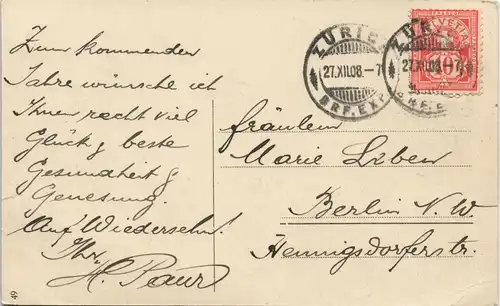 Zum kommenden
Jahre wünsche ich
Ihnen recht viel
Glück, & beste
Gesundheit &
Genesung.
Auf Wiedersehn!
Ihr
H. Paur
49
ZÜRICH
27.XII.08.–7
BRF. EXP.
ZÜRICH
27.XII.08.–7
BRF. E
HELVETIA
10
Fräulein
Marie
Berlin N.W.
Hennigsdorferstr.